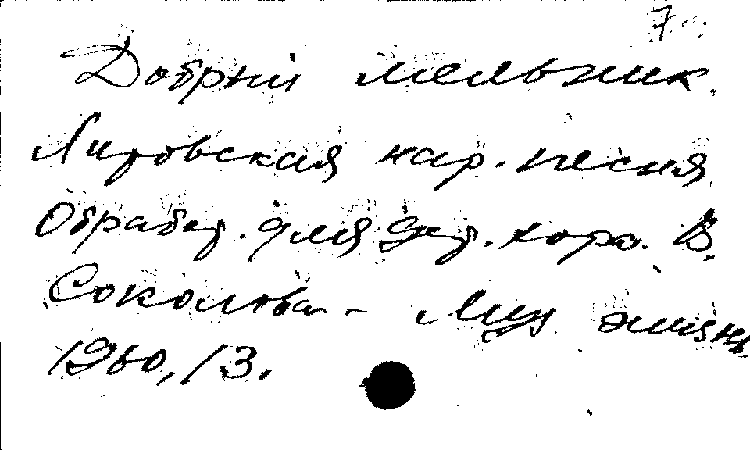 Добрый мельник.
Литовская нар. песня
Обработ. для дет. хора. В.
Соколова - Муз жизнь
1960, 13.